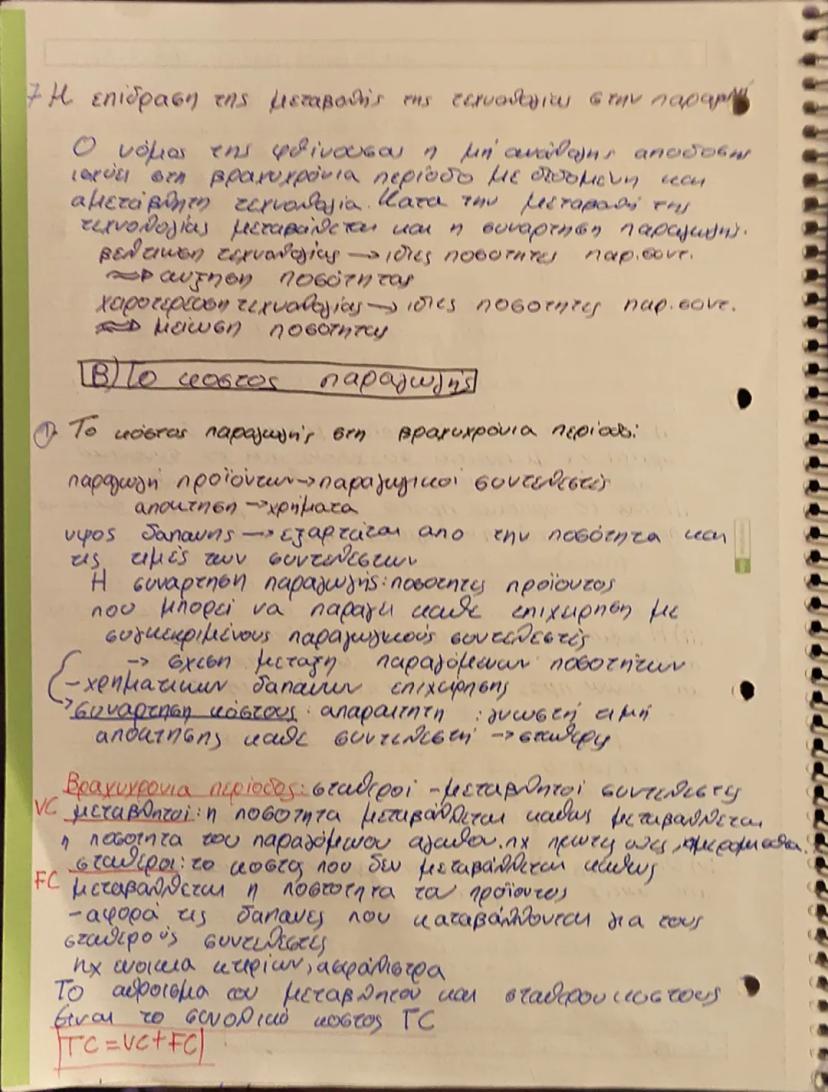 7 Η επίδραση της μεταβολής της τεχνολογίας στην παραγωγή
Ο νόμος της φθίνουσας η μή ανάλογης αποδοσης
ισχύει στη βραχυχρόνια περίοδο με δεδομένη και
αμετάβλητη τεχνολογία. Κατα την μεταβολή της
τεχνολογίας μεταβάλλεται και η συναρτηση παραγωγής.
βελτιωση τεχνολογίας → ιδιες ποσοτητες παρ. συντ.
⇒ αυξηση ποσότητας
χειροτερευση τεχνολογίας → ιδιες ποσοτητες παρ. συντ.
⇒ μείωση ποσοτητας
Β) Το κοστος παραγωγής
1. Το κόστος παραγωγής στη βραχυχρόνια περίοδο:
παραγωγή προϊόντων → παραγωγικοι συντελεστές
αποκτηση → χρήματα
υψος δαπανης → εξαρτάται απο την ποσότητα και
τις τιμές των συντελεστων
Η συναρτηση παραγωγής: ποσοτητες προϊοντος
που μπορεί να παραγει καθε επιχειρηση με
συγκεκριμένους παραγωγικούς συντελεστές
→ σχεση μεταξη παραγόμενων ποσοτήτων
- χρηματικων δαπανων επιχείρησης
→ συναρτηση κόστους: απαραιτητη: γνωστή τιμή
αποκτησης καθε συντελεστή → σταθερη
Βραχυχρονια περίοδος: σταθεροί - μεταβλητοι συντελεστες
VC μεταβλητοι: η ποσοτητα μεταβάλλεται καθως μεταβάλλεται
η ποσοτητα του παραγόμενου αγαθου. πχ πρωτες υλες, ημερομισθια.
σταθεροι: το κοστος που δεν μεταβάλλεται καθως
FC μεταβάλλεται η ποστοτητα το προϊοντος
- αφορά τις δαπανες που καταβάλλονται για τους
σταθερούς συντελεστες
πχ ενοικια κτιρίων, ασφάλιστρα
Το αθροισμα του μεταβλητου και σταθερου κοστους
ειναι το συνολικό κοστος TC
TC = VC + FC